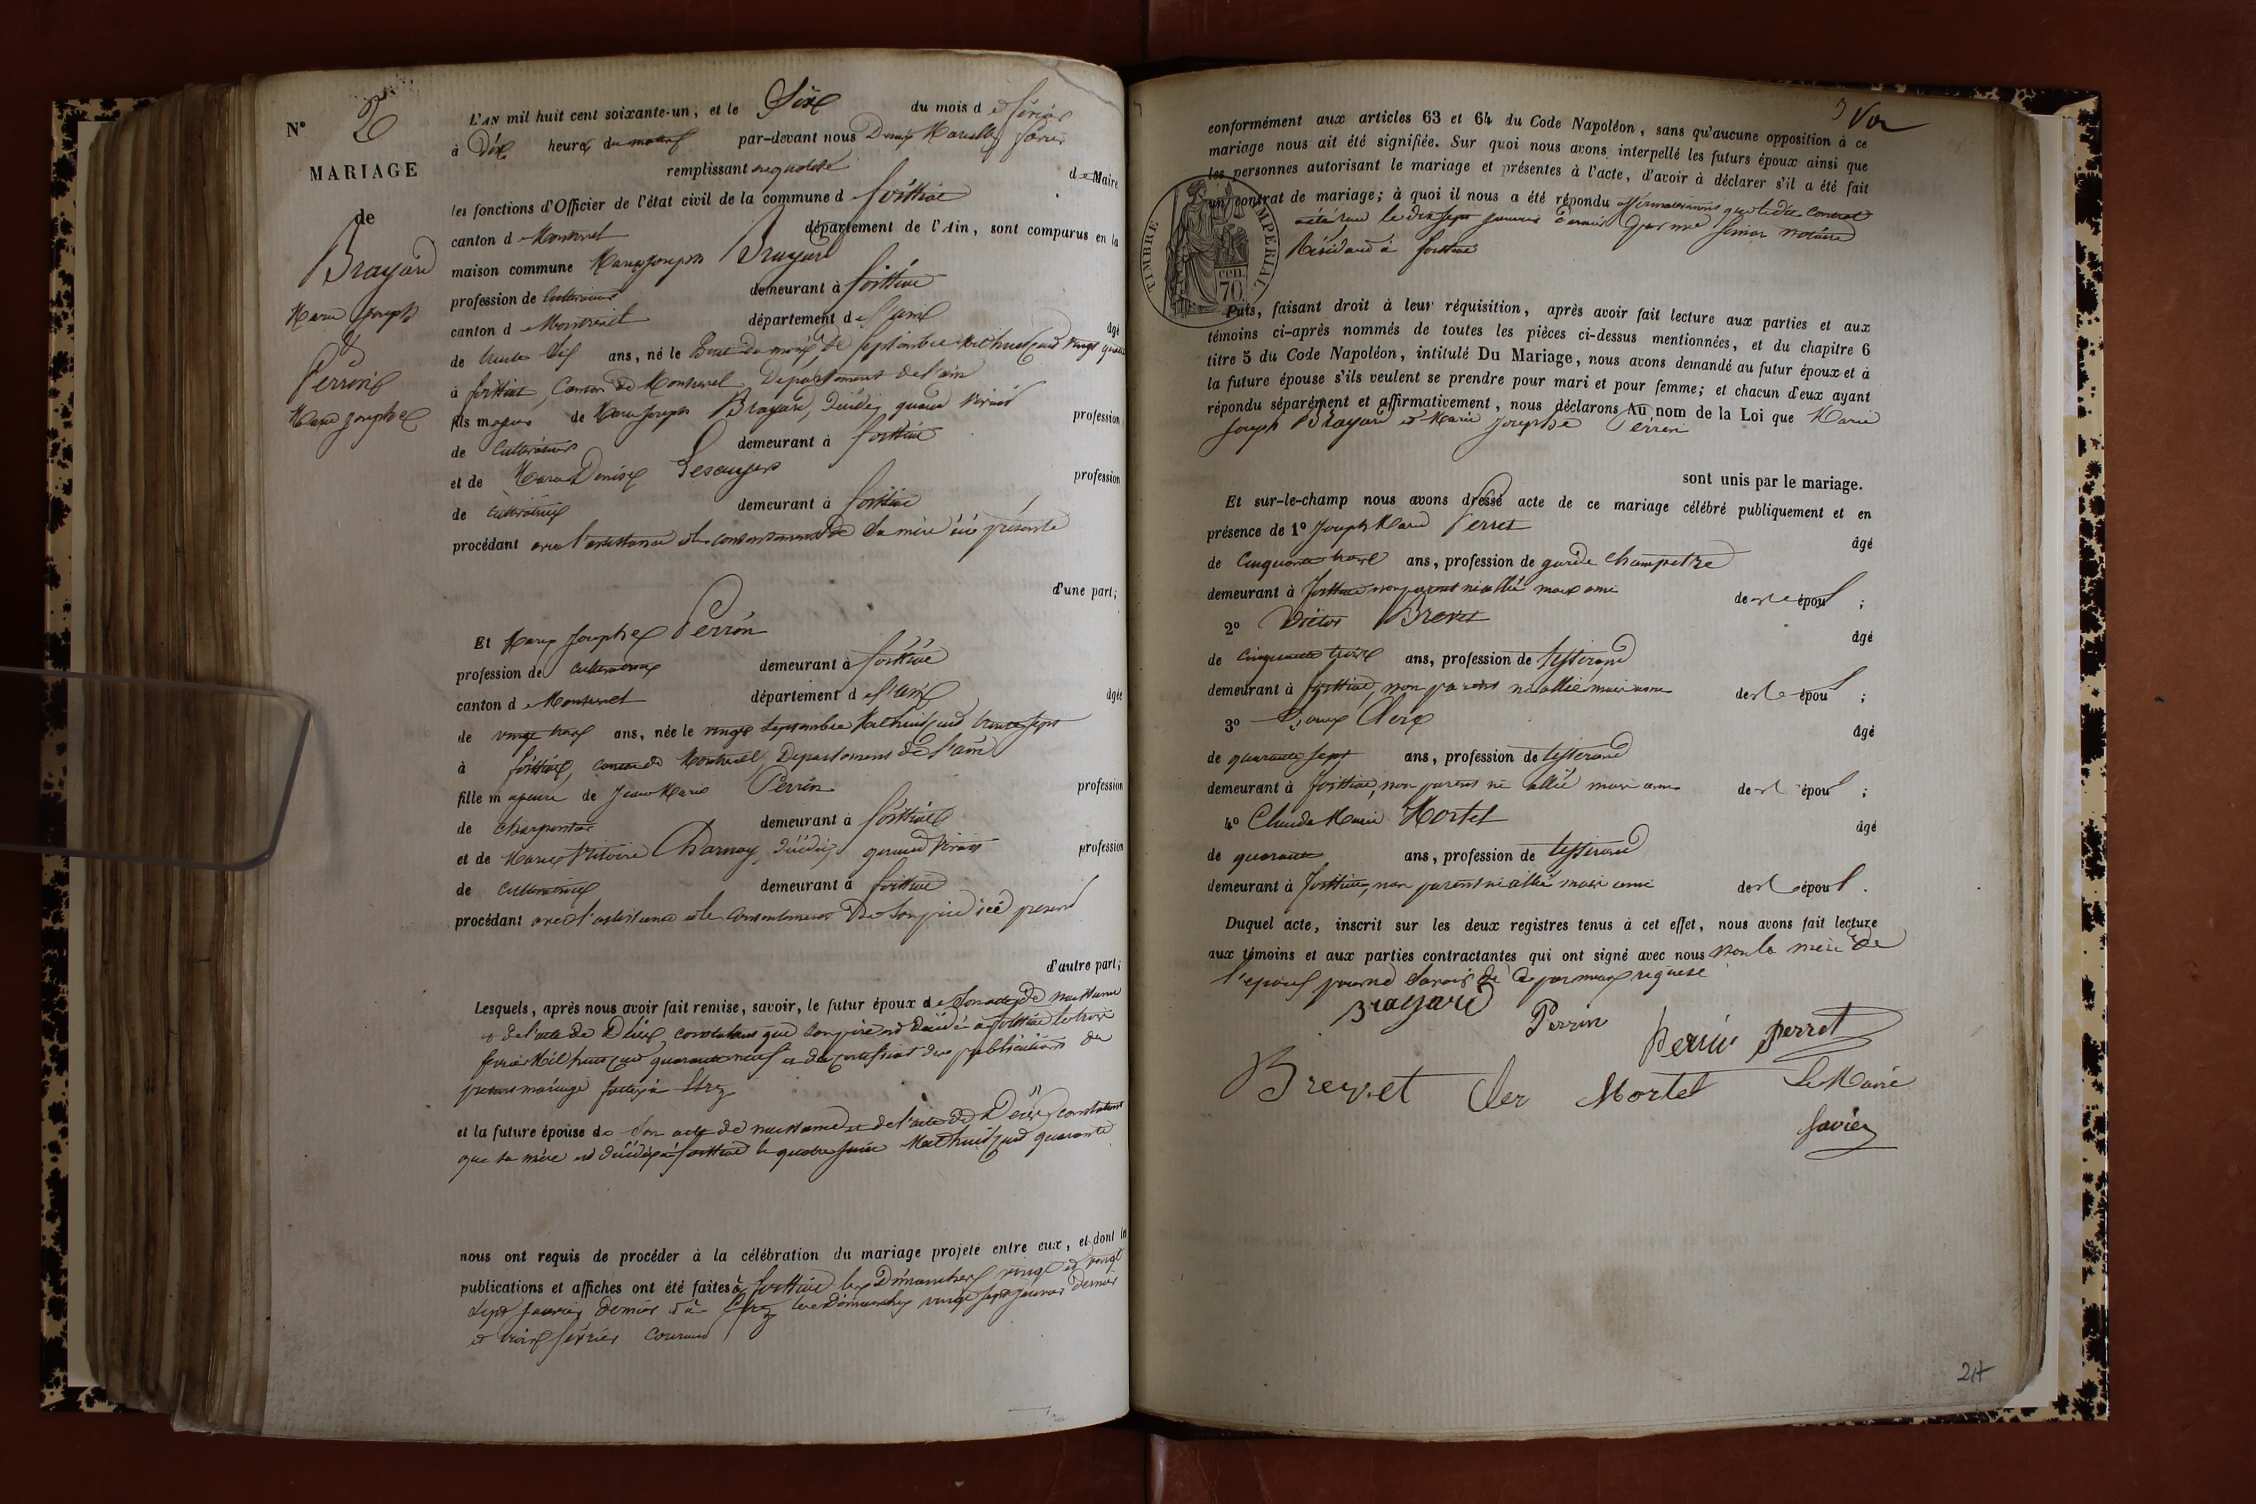 N° 2
MARIAGE
de
Brayard
Marie Joseph
&
Perrin
Marie Josephe
L'AN mil huit cent soixante-un, et le Six du mois de février
à Dix heures du matin par-devant nous Denis Marcelly favier
remplissant en qualité de Maire
les fonctions d'Officier de l'état civil de la commune de foissiat
canton de Montrevel département de l'Ain, sont comparus en la
maison commune Marie Joseph Brayard
profession de Cultivateur demeurant à foissiat
canton de Montrevel département de l'ain âgé
de trente Six ans, né le du mois de Septembre mil huit cent vingt quatre
à foissiat, Canton de Montrevel Departement de l'ain
fils majeur de Marie Joseph Brayard, Décédé, quand vivait profession
de Cultivateur demeurant à foissiat
et de Marie Denise profession
de Cultivatrice demeurant à foissiat
procédant avec l'assistance et le consentement de Sa mère ici présente
d'une part;
Et Marie Josephe Perrin
profession de cultivatrice demeurant à foissiat
canton de Montrevel département de l'ain âgée
de vingt trois ans, née le vingt Septembre Mil huit cent trente sept
à foissiat, canton de Montrevel, Departement de l'ain
fille majeure de Jean Marie Perrin profession
de Charpentier demeurant à foissiat
et de Marie Victoire Charnay, Décédée, quand vivait profession
de Cultivatrice demeurant à foissiat
procédant avec l'assistance et le consentement de Son père ici présent
d'autre part;
Lesquels, après nous avoir fait remise, savoir, le futur époux de Son acte de naissance
& de l'acte de Décès, constatant que Son père est Décédé à foissiat le trois
février Mil huit cent quarante neuf et du certificat des publications du
présent mariage faites à
et la future épouse de Son acte de naissance et de l'acte de Décès constatant
que sa mère est décédée à foissiat le quatre Mil huit cent quarante
nous ont requis de procéder à la célébration du mariage projeté entre eux, et dont les
publications et affiches ont été faites à foissiat les Dimanches vingt et vingt
Sept Janvier dernier & à les Dimanches vingt sept Janvier Dernier
et trois février courant
conformément aux articles 63 et 64 du Code Napoléon, sans qu'aucune opposition à ce
mariage nous ait été signifiée. Sur quoi nous avons interpellé les futurs époux ainsi que
les personnes autorisant le mariage et présentes à l'acte, d'avoir à déclarer s'il a été fait
un contrat de mariage; à quoi il nous a été répondu affirmativement que ledit Contrat
a été reçu le dix sept Janvier Dernier par me notaire
Résidant à foissiat
TIMBRE IMPERIAL
CEN.
70.
Puis, faisant droit à leur réquisition, après avoir fait lecture aux parties et aux
témoins ci-après nommés de toutes les pièces ci-dessus mentionnées, et du chapitre 6
titre 5 du Code Napoléon, intitulé Du Mariage, nous avons demandé au futur époux et à
la future épouse s'ils veulent se prendre pour mari et pour femme; et chacun d'eux ayant
répondu séparément et affirmativement, nous déclarons Au nom de la Loi que Marie
Joseph Brayard et Marie Josephe Perrin
sont unis par le mariage.
Et sur-le-champ nous avons dressé acte de ce mariage célébré publiquement et en
présence de 1° Joseph Marie Perret âgé
de Cinquante trois ans, profession de garde Champetre
demeurant à foissiat non parent ni allié mais ami de l'époux ;
2° Victor Brevet âgé
de Cinquante trois ans, profession de tisserand
demeurant à foissiat, non parent ni allié mais ami de l'époux ;
3° Clerc âgé
de quarante sept ans, profession de tisserand
demeurant à foissiat, non parent ni allié mais ami de l'époux ;
4° Claude Marie Mortel âgé
de quarante ans, profession de tisserand
demeurant à foissiat, non parent ni allié mais ami de l'époux .
Duquel acte, inscrit sur les deux registres tenus à cet effet, nous avons fait lecture
aux témoins et aux parties contractantes qui ont signé avec nous non la mère de
l'époux pour ne Savoir de ce par nous requise
Brayard
Perrin
Perrin Perret
Breyvet Cler Mortel Le Maire
favier
24